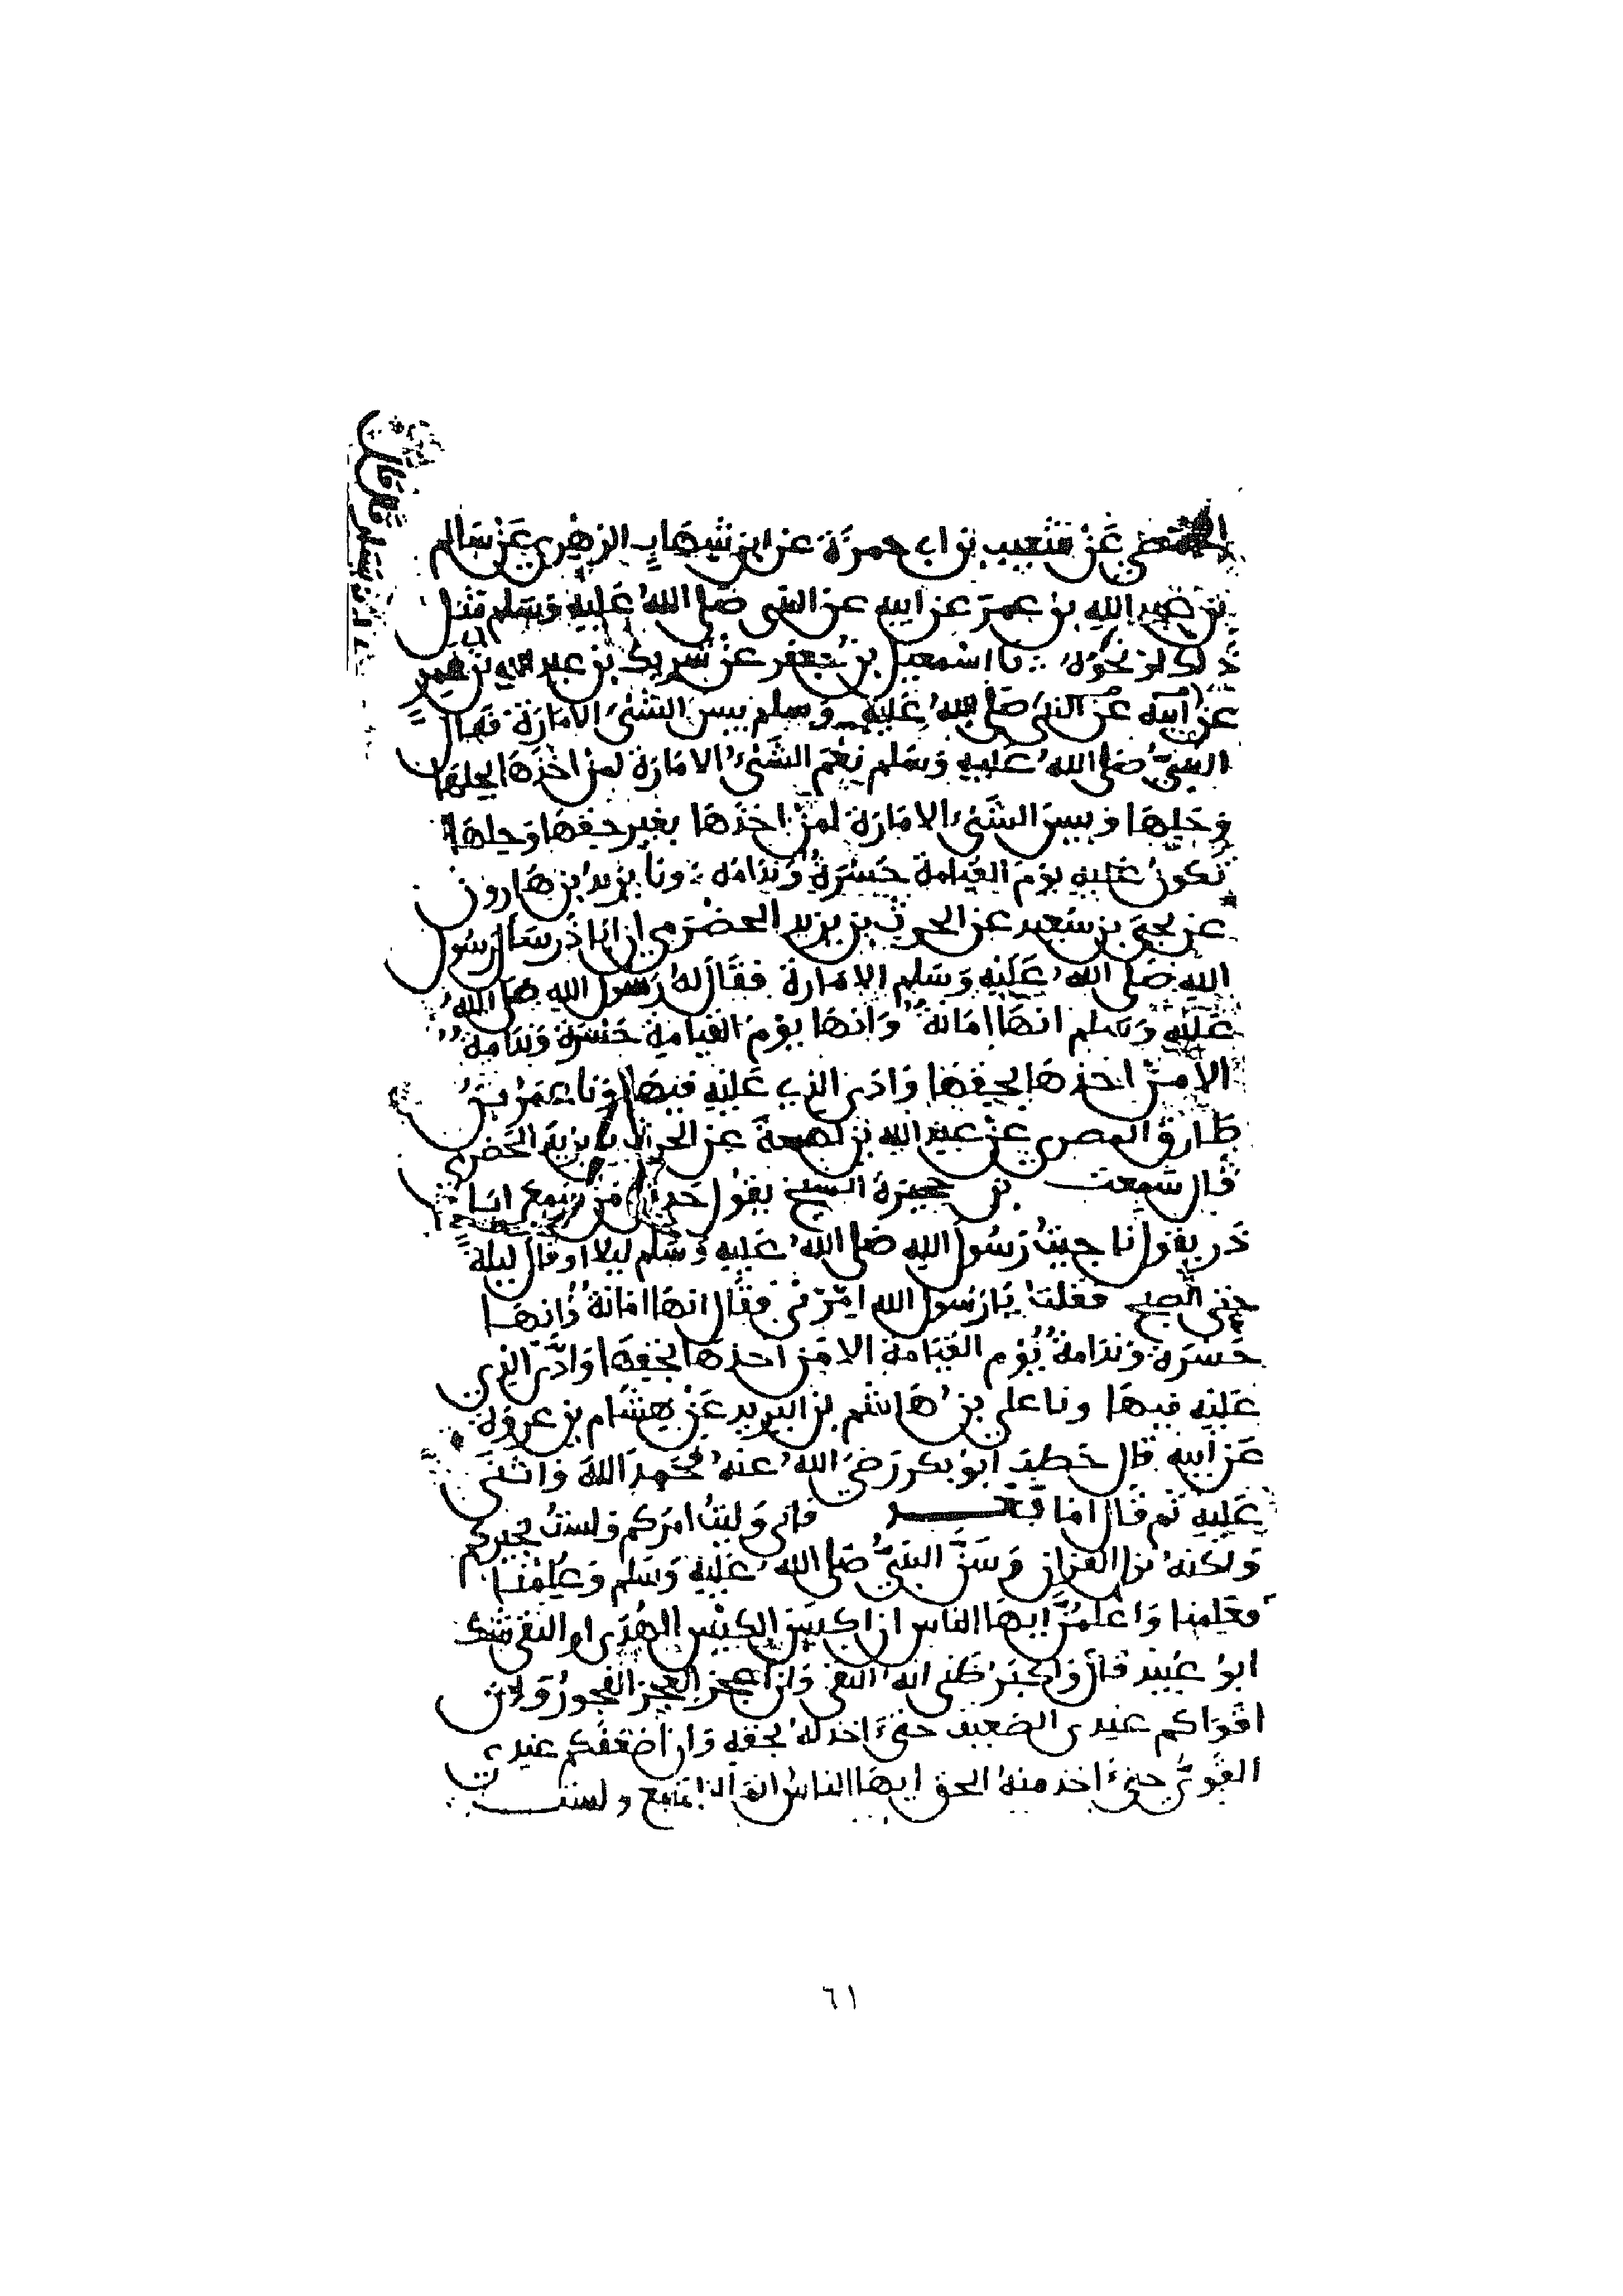 الحمصي عَنْ شعيب بن ابي حمزَة عن ابن شهَابٍ الزهْري عَنْ سَالم
بن عبد الله بن عمرَ عن ابيه عن النبي صَلى اللهُ عَليْهِ وَسَلم مثل
ذلك او نحوَهُ نا اسْمعيل بن جعفر عن شريك بن عبد الله بن
عن ابيه عن النبي صَلى اللهُ عَليْهِ وَسلم بيسَ الشئُ الامَارَة فقال
النبيُّ صَلى اللهُ عَليْهِ وَسَلم نِعْمَ الشَّئُ الامَارَة لمن اخذَهَا بحلهَا
وَحَلِهَا وَبيسَ الشَئُ الامَارَة لمن اخذهَا بغير حقهَا وَحلهَا
تكونُ عَليهِ يوْمَ القيامة حَسْرَةً وَندَامَه ونا يزيدُ بن هَارون
عن يحيَى بن سَعيد عن الحرث بن يزيد الحضْرَمي ان ابا ذر سَأل رَسُول
الله صَلى اللهُ عَليْه وَسَلم الامَارَة فقَال لهُ رَسُول الله صَلى اللهُ
عَليْهِ وَسَلم انهَا امَانة وَانهَا يوْمَ القيامةِ حَسْرَة وَندَامة
الا منْ اخذهَا بحقهَا وَادى الذي عَليْهِ فيهَا وَنا عمَرُ بنُ
طَارق المصري عنْ عبْد الله بن لهيعَةَ عن الحرث بن يزيدَ الحَضرمي
قال سَمعت بن حجيرَة الشيخ يقوُل حَدثني مَنْ سَمع ابَا
ذر يقول نا جيتُ رَسُول الله صَلى اللهُ عَليهِ وَسَلم ليلا او قال ليلة
حتى الصبح فقلت يَا رَسُول الله امّرني فقَال انهَا امَانةٌ وَانهَا
حَسْرَة وَندَامةٌ يَوْم القيَامة الا مَن اخذهَا بحقهَا وَادَّى الذي
عَليْهِ فيهَا ونا علي بن هَاشم بن البريد عَنْ هِشَام بن عروَة
عَن ابيه قال خطبَ ابوُ بكر رَضيَ اللهُ عنهُ فحَمِدَ اللهَ وَاثنَى
عَليْه ثم قَال امَا بَعْد فاني وَليتُ امرَكم وَلستُ بخيركم
وَلكنهُ نزل القران وَسَنَّ النبيُّ صَلى الله عَليْهِ وَسَلم وَعَلمْنا
فعَلمنا وَاعْلمُنَّ ايهَا الناس ان اكيسَ الكيْس الهُدَى او التقى شك
ابوُ عُبَيْد قال وَاكبَر ظني انهُ التقى وَان اعجزَ العَجز الفجورُ وَان
اقوَاكم عندي الضعيف حتى اخذ لهُ بحقه وَان اضعَفكم عندي
القويُّ حتى اخذ منهُ الحق ايهَا الناسُ انما انا متبع ولست
٦١